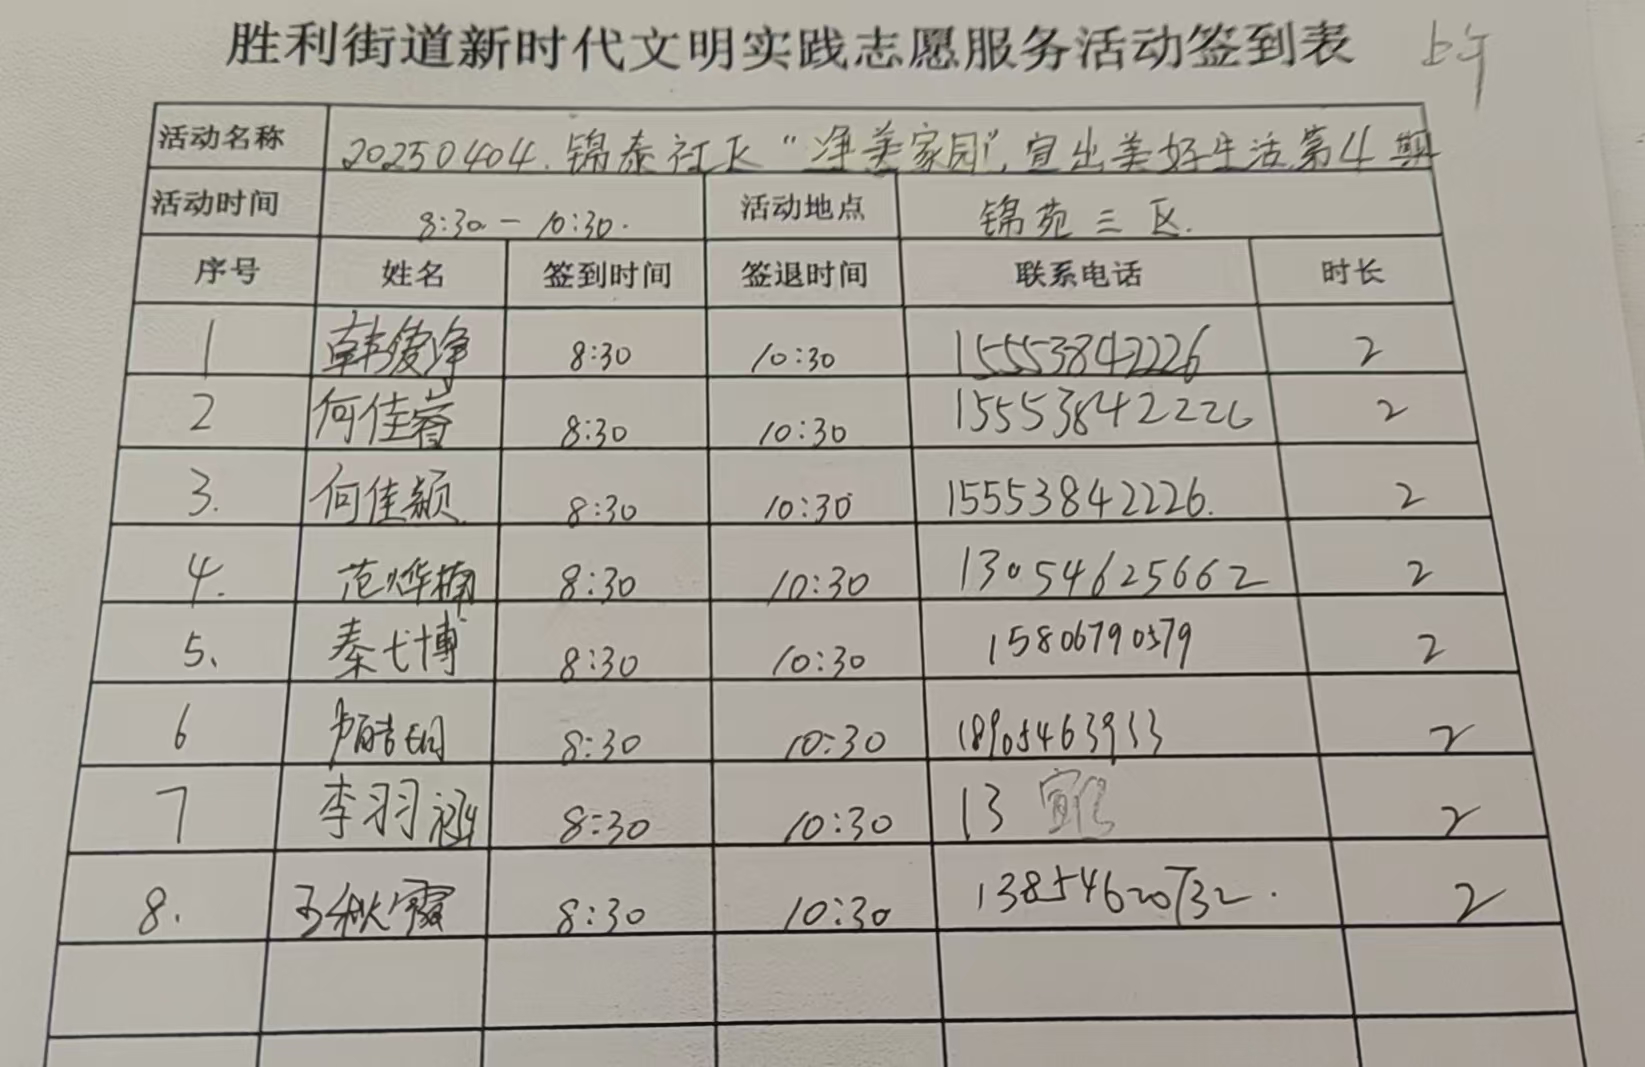 胜利街道新时代文明实践志愿服务活动签到表 上午
活动名称 20250404.锦泰社区“净美家园”,宜出美好生活第4期
活动时间 8:30-10:30. 活动地点 锦苑三区.
序号 姓名 签到时间 签退时间 联系电话 时长
1 韩俊净 8:30 10:30 15553842226 2
2 何佳睿 8:30 10:30 15553842226 2
3. 何佳颖 8:30 10:30 15553842226. 2
4. 范烨楠 8:30 10:30 13054625662 2
5、 秦弋博 8:30 10:30 15806790379 2
6 8:30 10:30 18905463933 2
7 李羽涵 8:30 10:30 13 2
8. 王秋霞 8:30 10:30 13854620732. 2